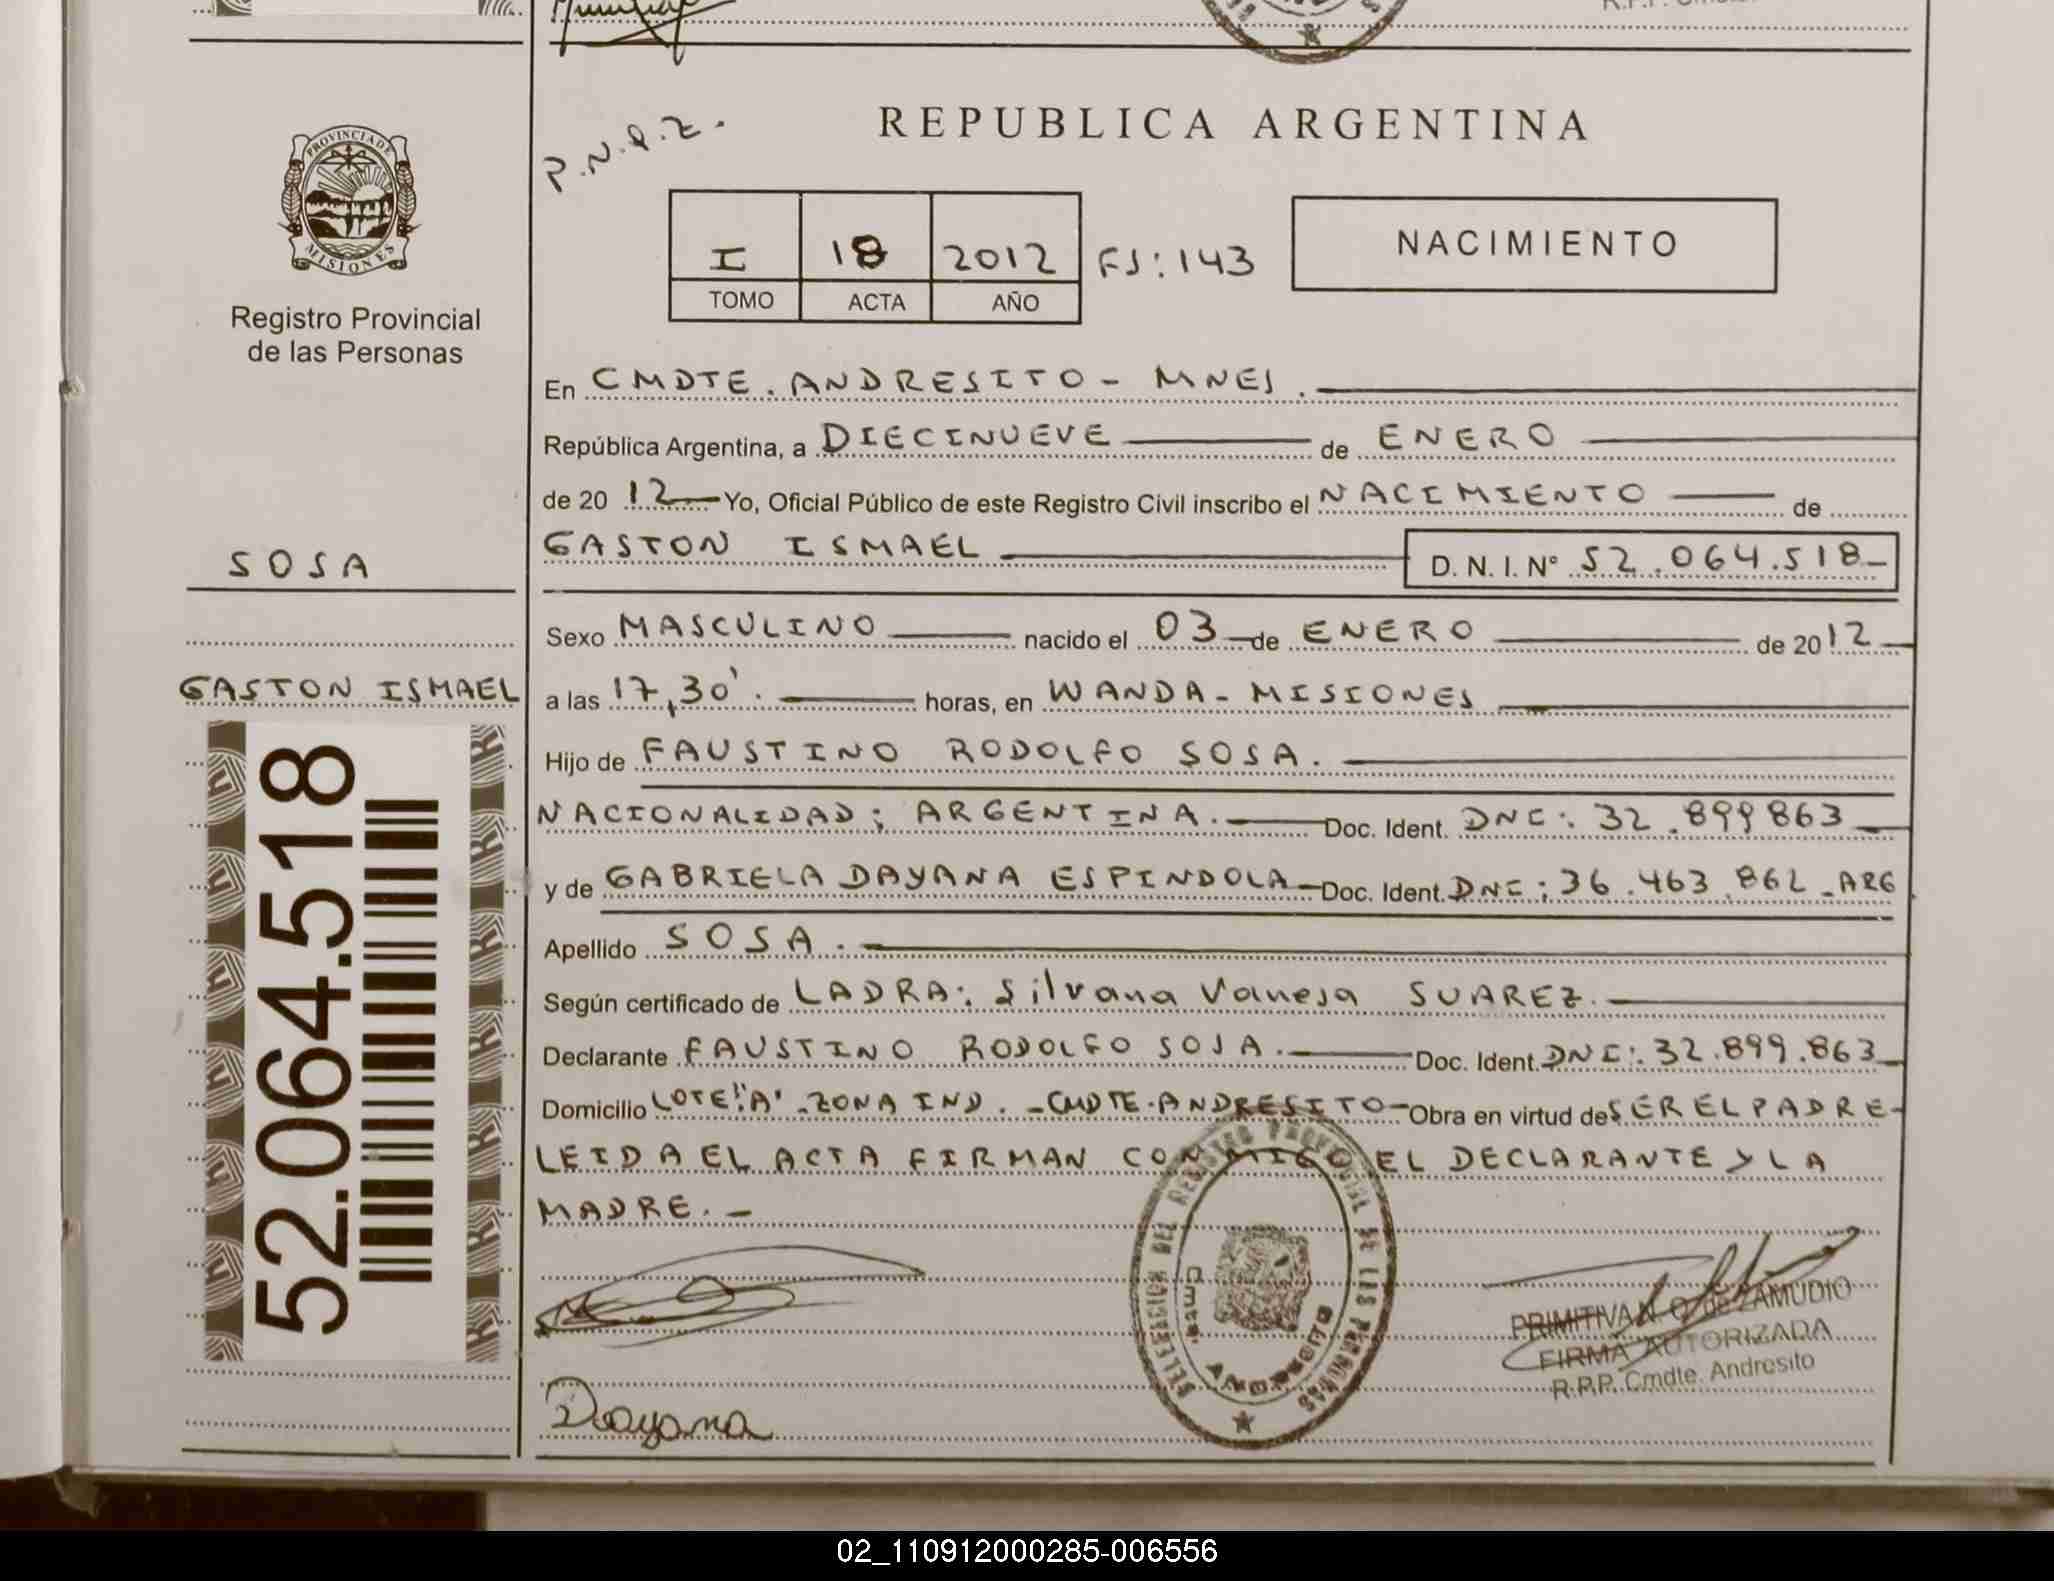 REPUBLICA ARGENTINA
P.N.Q.Z.
PROVINCIA DE
MISIONES
Registro Provincial
de las Personas
I 18 2012 FS:143
TOMO ACTA AÑO
NACIMIENTO
En CMDTE. ANDRESITO - MNES.
República Argentina, a DIECINUEVE de ENERO
de 20 12 Yo, Oficial Público de este Registro Civil inscribo el NACIMIENTO de
GASTON ISMAEL D.N.I. N° 52.064.518-
SOSA
Sexo MASCULINO nacido el 03 de ENERO de 2012
GASTON ISMAEL
a las 17,30'. horas, en WANDA - MISIONES
Hijo de FAUSTINO RODOLFO SOSA.
NACIONALIDAD: ARGENTINA. Doc. Ident. DNI: 32.899863
y de GABRIELA DAYANA ESPINDOLA Doc. Ident. DNI: 36.463.862 - ARG
Apellido SOSA.
Según certificado de LADRA: Silvana Vanesa SUAREZ.
Declarante FAUSTINO RODOLFO SOSA. Doc. Ident. DNI: 32.899.863
Domicilio LOTE "A" - ZONA IND. - CMDTE. ANDRESITO - Obra en virtud de SER EL PADRE -
LEIDA EL ACTA FIRMAN CONMIGO EL DECLARANTE Y LA
MADRE. -
52.064.518
DEL REGISTRO PROVINCIAL DE LAS PERSONAS
Cmte. ANDRESITO
PRIMITIVA N. O. de ZAMUDIO
FIRMA AUTORIZADA
R.P.P. Cmdte. Andresito
Dayana
02_110912000285-006556